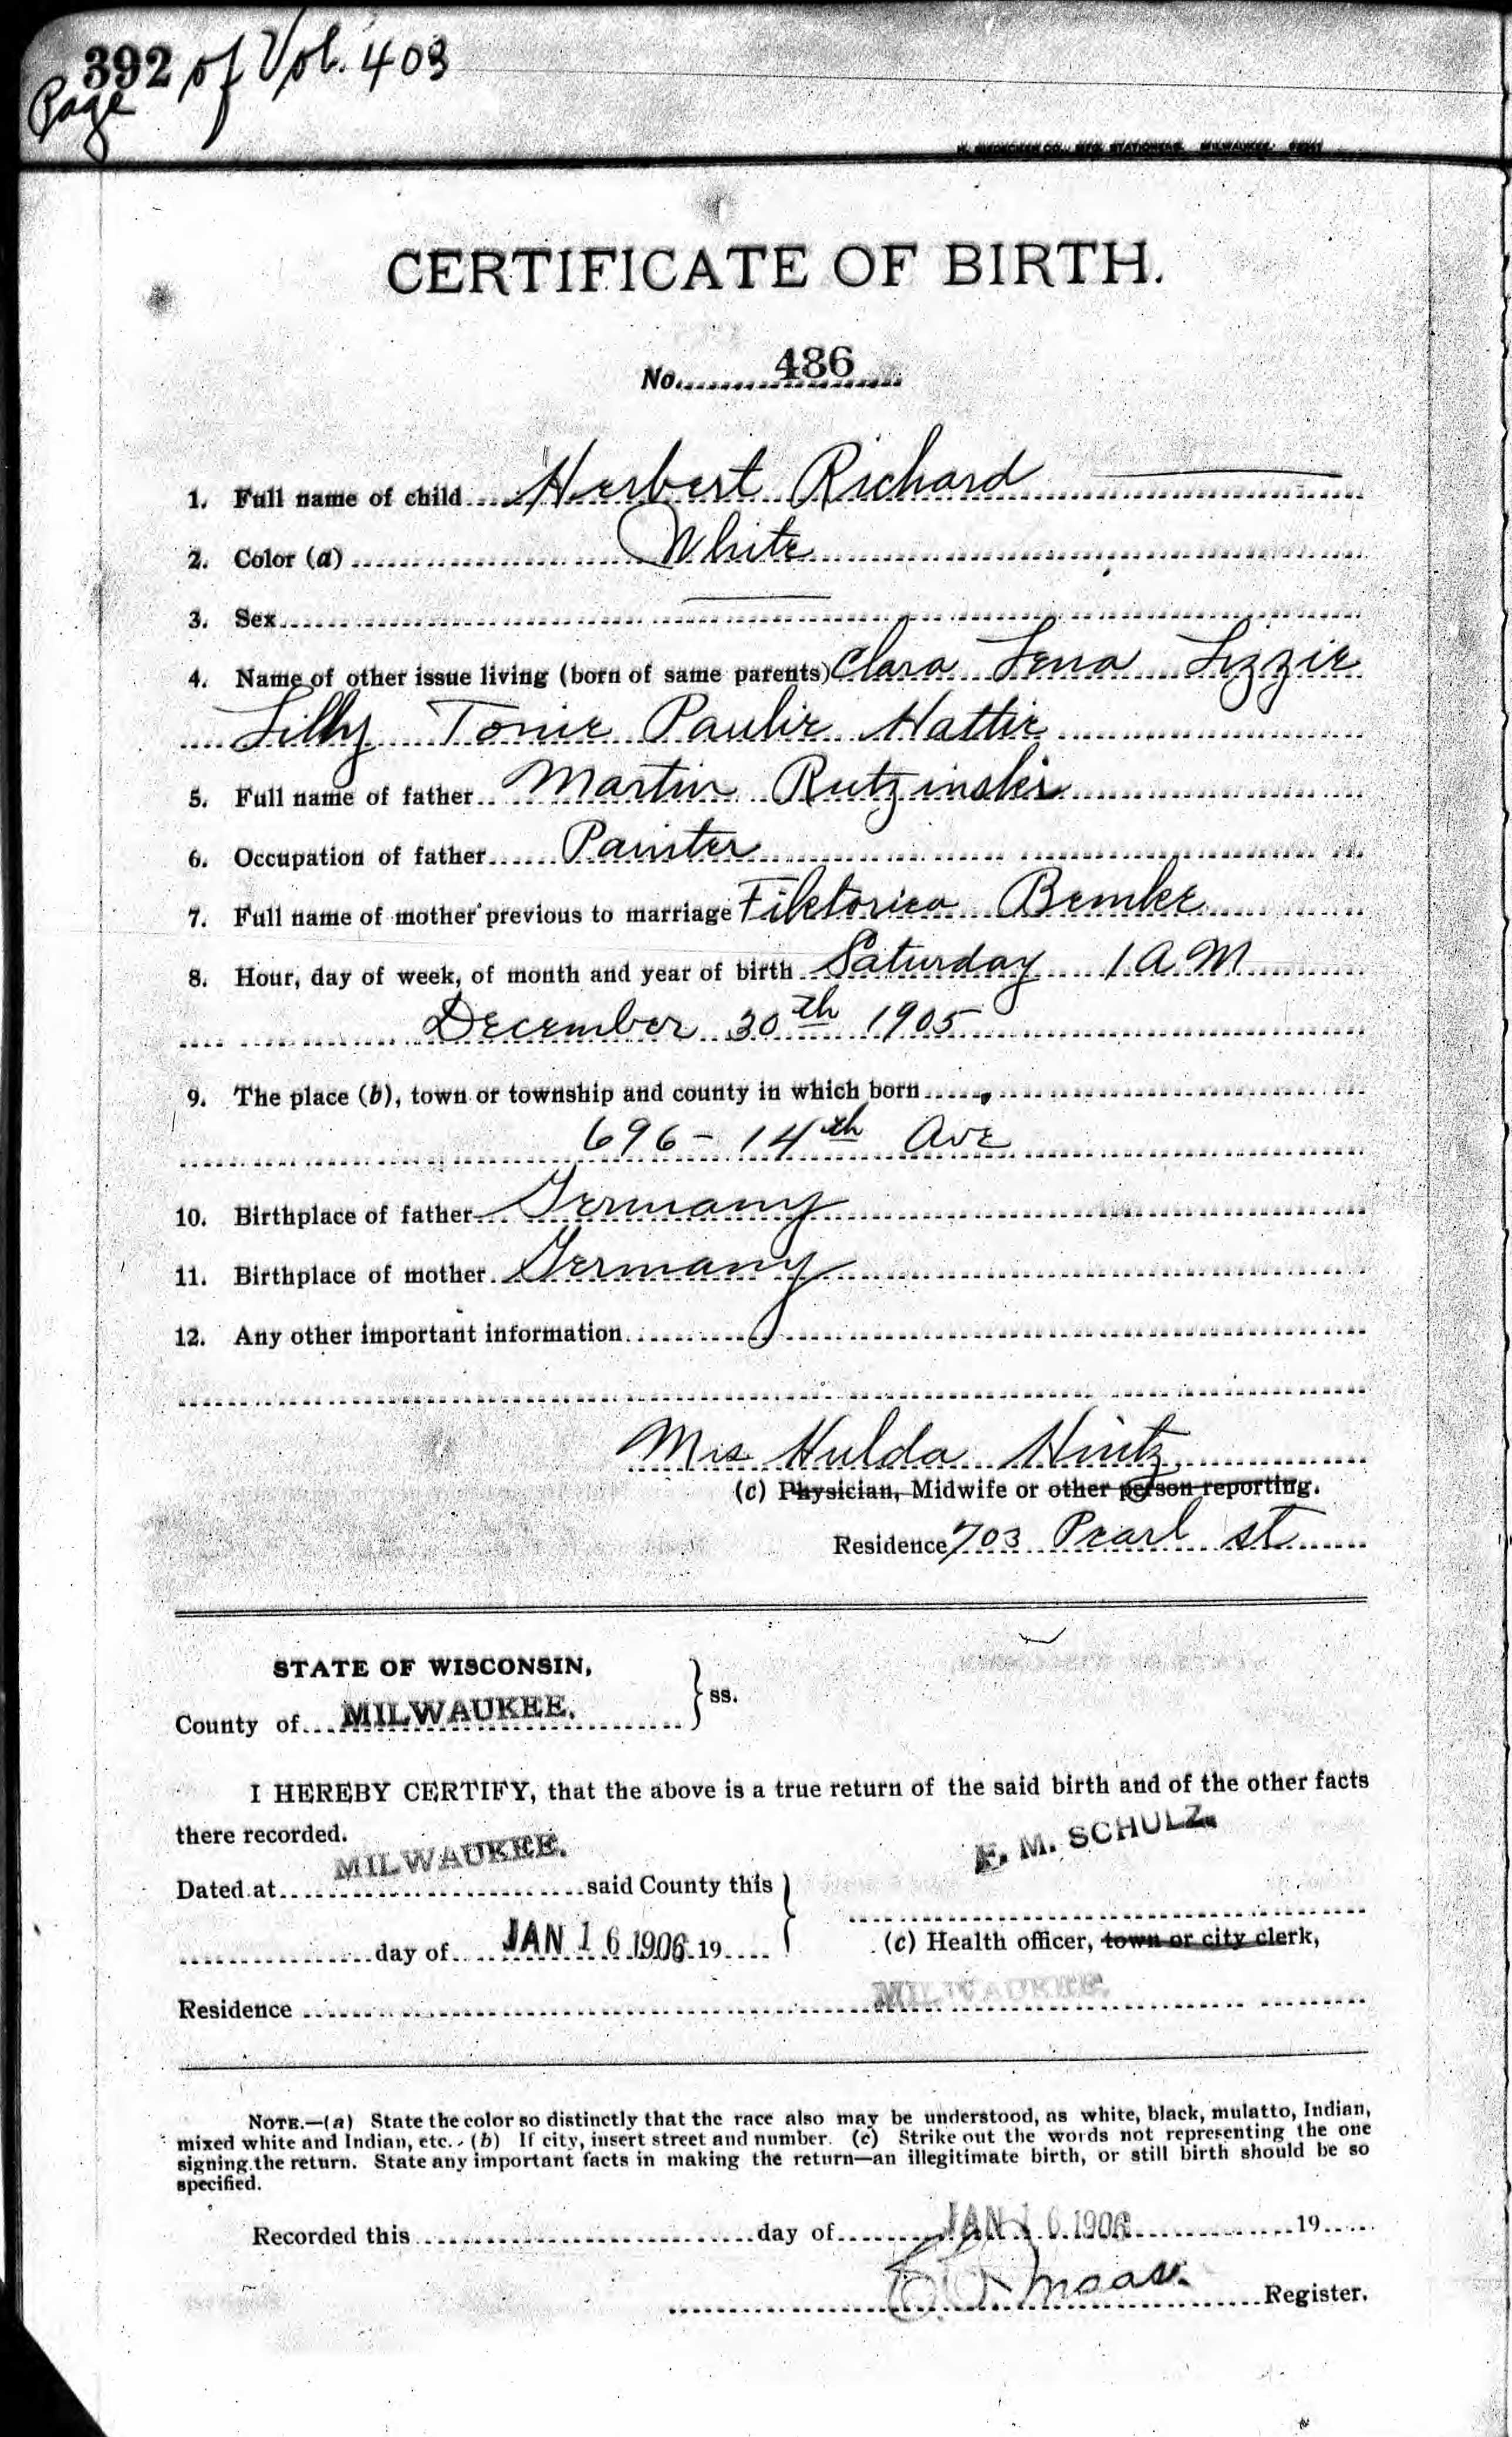 392 of Vol. 403
Page
CERTIFICATE OF BIRTH.
No. 486
1. Full name of child Herbert Richard
2. Color (a) White
3. Sex
4. Name of other issue living (born of same parents) Clara Lena Lizzie
Lilly Tonie Paulie Hattie
5. Full name of father Martin Rutzinski
6. Occupation of father Painter
7. Full name of mother previous to marriage Fiktorica Bemke
8. Hour, day of week, of month and year of birth Saturday 1 A.M
December 30th 1905
9. The place (b), town or township and county in which born
696 - 14th Ave
10. Birthplace of father Germany
11. Birthplace of mother Germany
12. Any other important information
Mrs Hulda Hintz
(c) Physician, Midwife or other person reporting.
Residence 703 Pearl st
STATE OF WISCONSIN,
County of MILWAUKEE. } ss.
I HEREBY CERTIFY, that the above is a true return of the said birth and of the other facts
there recorded.
MILWAUKEE. F. M. SCHULZ.
Dated at said County this }
day of JAN 16 1906 19 (c) Health officer, town or city clerk,
Residence MILWAUKEE.
NOTE.—(a) State the color so distinctly that the race also may be understood, as white, black, mulatto, Indian,
mixed white and Indian, etc. (b) If city, insert street and number. (c) Strike out the words not representing the one
signing the return. State any important facts in making the return—an illegitimate birth, or still birth should be so
specified.
Recorded this day of JAN 16 1906 19
Maas Register.